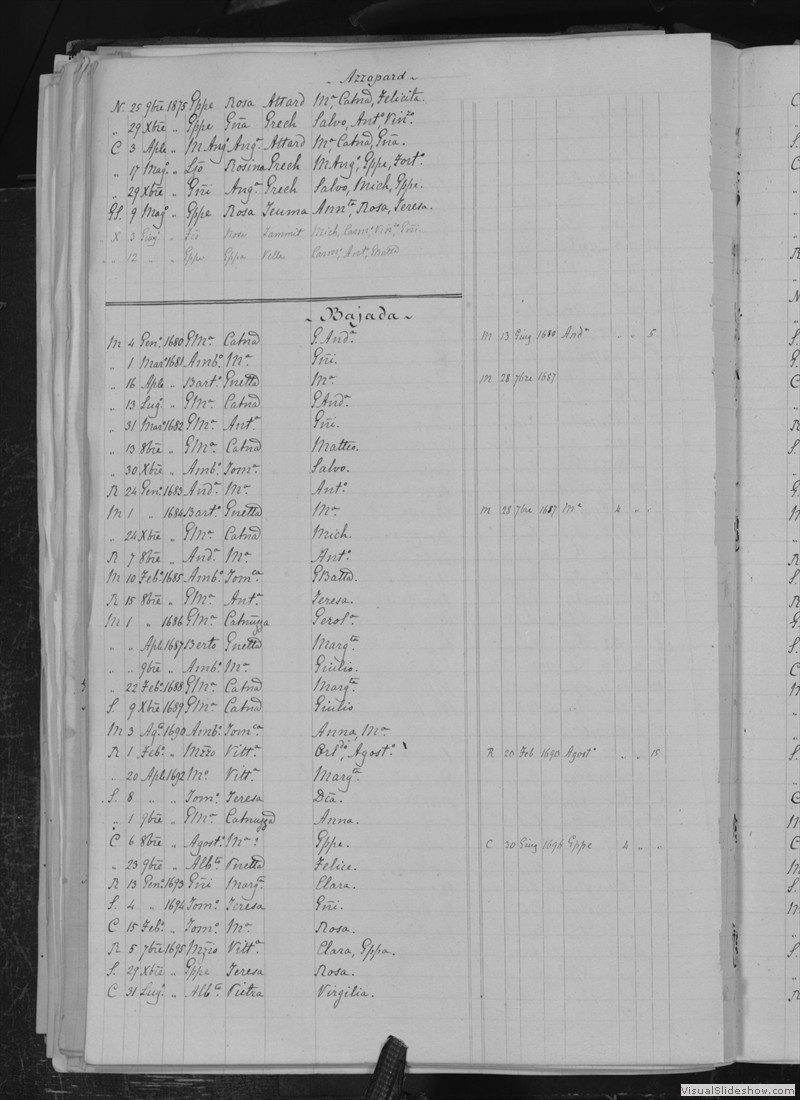 Azzopard
N. 25 9bre 1875 Gppe Rosa Attard Mª, Catnd, Felicita.
" 29 Xbre " Gppe Gña Grech Salvo, Antº, Vinzº.
C 3 Aple " M Angº Angª Attard Mª Catnd, Gña.
" 17 Magº " Rosina Grech M Angº, Gppe, Fortº.
" 29 Xbre " Gñi Angª Grech Salvo, Mich, Gppe.
GS. 9 Magº " Gppe Rosa Teuma Annta, Rosa, Teresa.
X 3 Giug. " Rosa Zammit Mich, Carmª, Vinzª, Gñi.
" 12 " " Gppe Gppa Vella Carmª, Antº,
Bajada
M 4 Genº 1680 GMª Catnd G. Andª. M 13 Giug 1680 Andª " " 5
" 1 Marº 1681 Ambº Mª Gñi.
" 16 Aple " Bartº Gnetta Mª M 28 7bre 1687
" 13 Lugº " GMª Catnd G. Andª.
" 31 Marº 1682 GMª Antª Gñi.
" 13 8bre " GMª Catnd Matteo.
" 30 Xbre " Ambº Tomª Salvo.
R 24 Genº 1683 Andª Mª Antº
M 1 " 1684 Bartº Gnetta Mª M 28 7bre 1687 Mª 4 " "
" 24 Xbre " GMª Catnd Mich.
R 7 8bre " Andª Mª Antº
M 10 Febº 1685 Ambº Tomca GBattd.
R 15 8bre " GMª Antª Teresa.
M 1 " 1686 GMª Catnuzza Gerolª
" " Aple 1687 Berto Gnetta Margta
" " 9bre " Ambº Mª Giulio.
" 22 Febº 1688 GMª Catnd Margta
S. 9 Xbre 1689 GMª Catnd Giulio
M 3 Agto 1690 Ambº Tomca Anna, Mª
R 1 Febº " Mzzo Vittª Orldº, Agostº R 20 Feb 1690 Agostº " " 15
" 20 Aple 1692 Mº Vittª Margta
S. 8 " " Tomº Teresa Dca.
" 1 9bre " GMª Catnuzza Anna.
C 6 8bre " Agostº Mª Gppe. C 30 Giug 1696 Gppe 4 " "
" 23 9bre " Albto Felice.
R 13 Genº 1693 Gñi Margta Clara.
S. 4 " 1694 Tomº Teresa Gñi.
C 15 Febº " Tomº Mª Rosa.
R 5 7bre 1695 Mzzo Vittª Clara, Gppa.
S. 29 Xbre " Gppe Teresa Rosa.
C 31 Lugº " Albto Pietra Virgilia.
VisualSlideshow.com